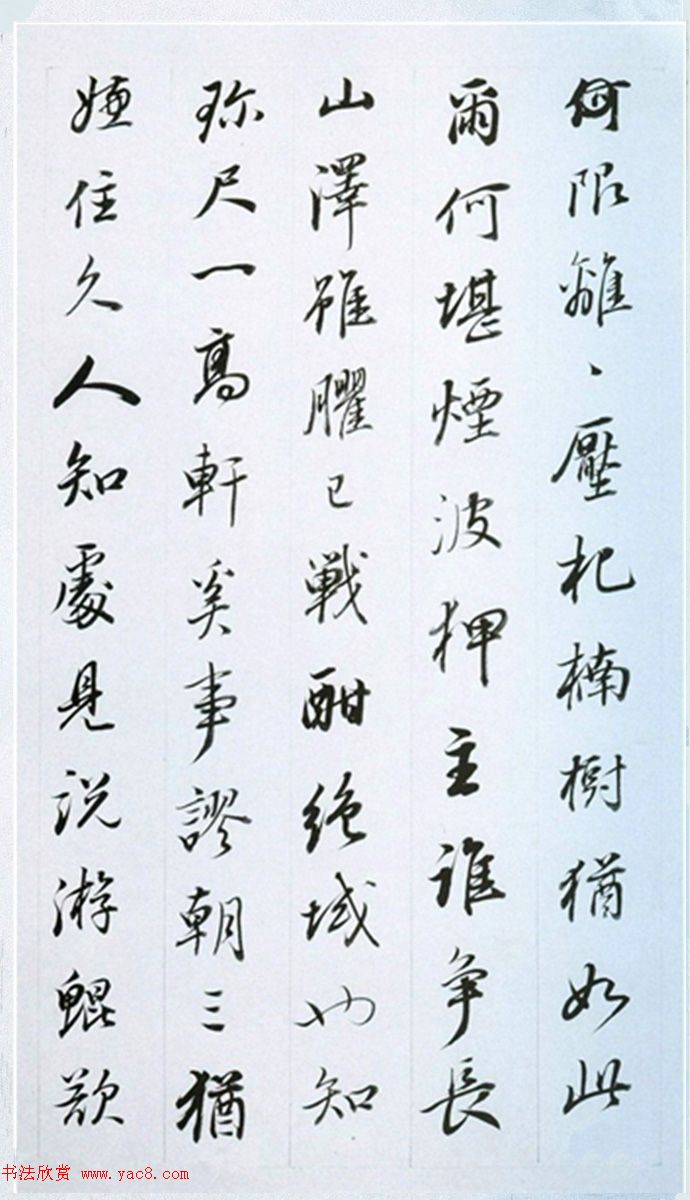 何限離、壓杞楠樹猶如此
爾何堪煙波狎主誰爭長
山澤雖臞已戰酣絕域也知
珎尺一高軒奚事謬朝三猶
嫌住久人知處見說游鯤欲
书法欣赏 www.yac8.com